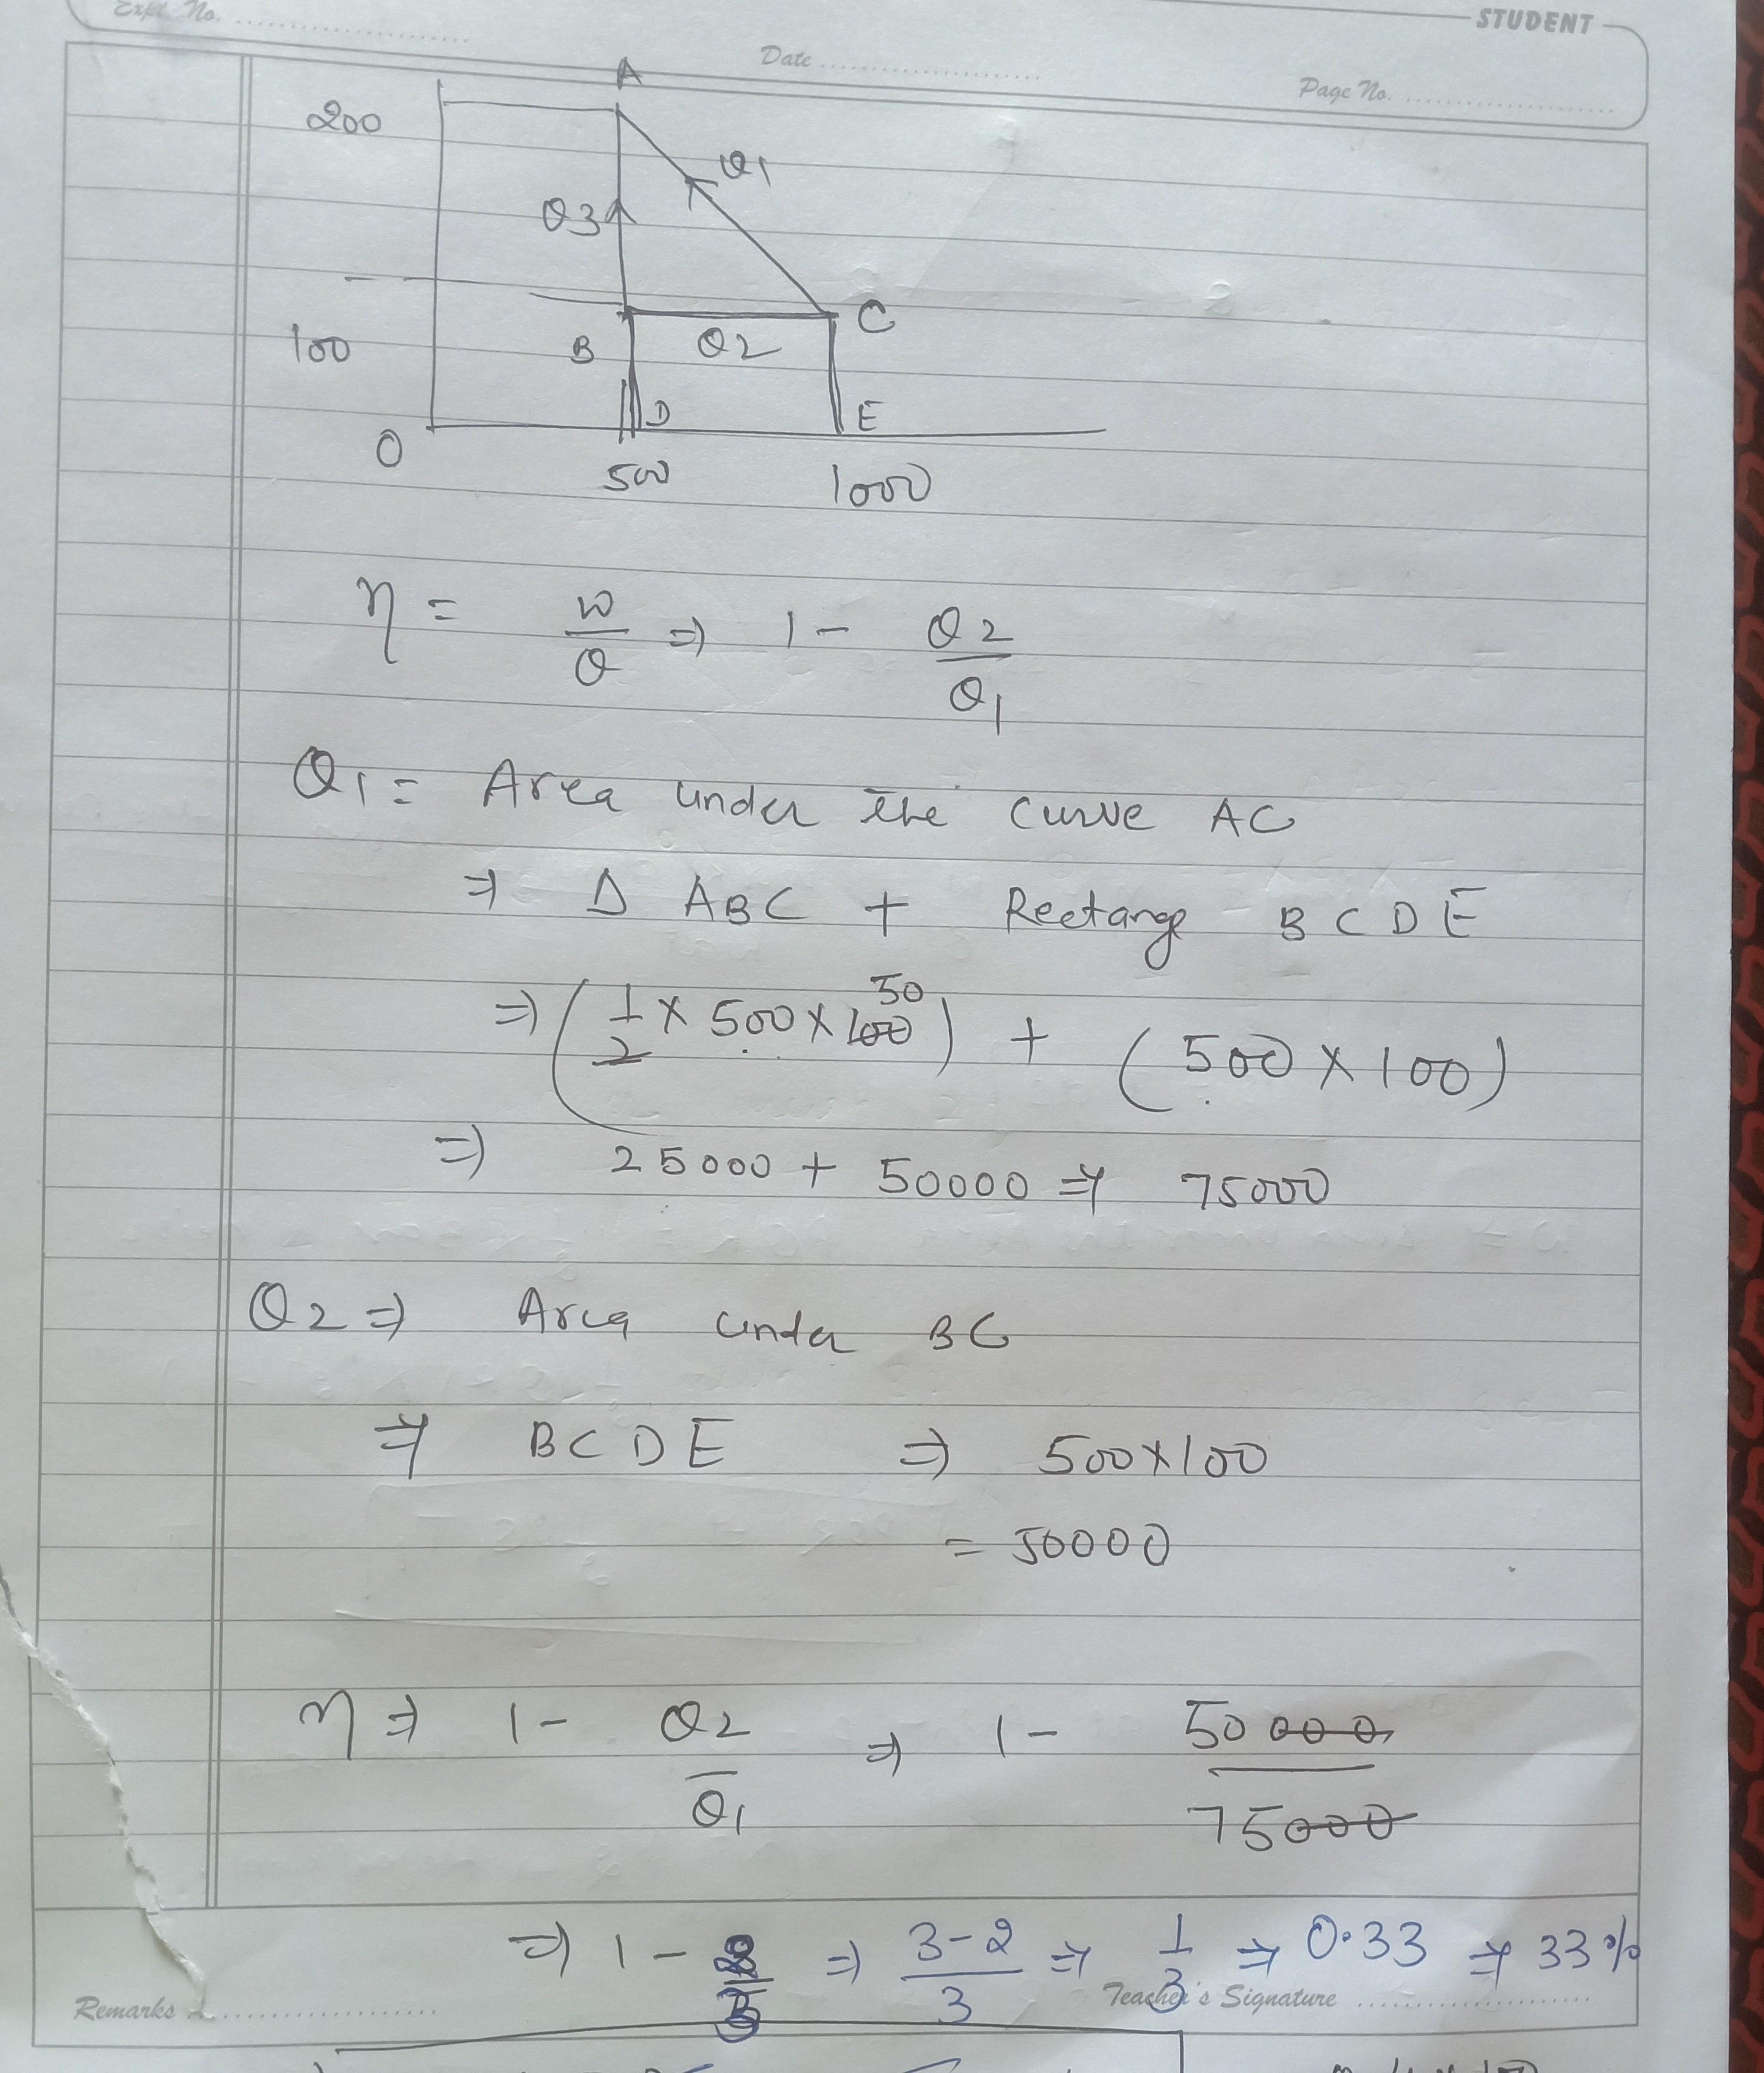 Expt. No.
STUDENT
Date
Page No.
A
200
Q1
Q3
C
100
B
Q2
D
E
O
500
1000
η = W/Q ⇒ 1 - Q2/Q1
Q1 = Area under the curve AC
⇒ Δ ABC + Rectange BCDE
⇒ (1/2 × 500 × 100 50) + (500 × 100)
⇒ 25000 + 50000 ⇒ 75000
Q2 ⇒ Area under BC
⇒ BCDE ⇒ 500×100
= 50000
η ⇒ 1 - Q2/Q1 ⇒ 1 - 50000/75000
⇒ 1 - 2/3 ⇒ 3-2/3 ⇒ 1/3 ⇒ 0.33 ⇒ 33%
Remarks
Teacher's Signature